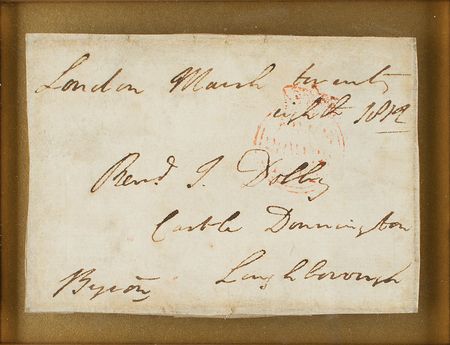 London March twenty
eighth 1812
Revd. J. Dolby
Castle Donnington
Byron Loughborough